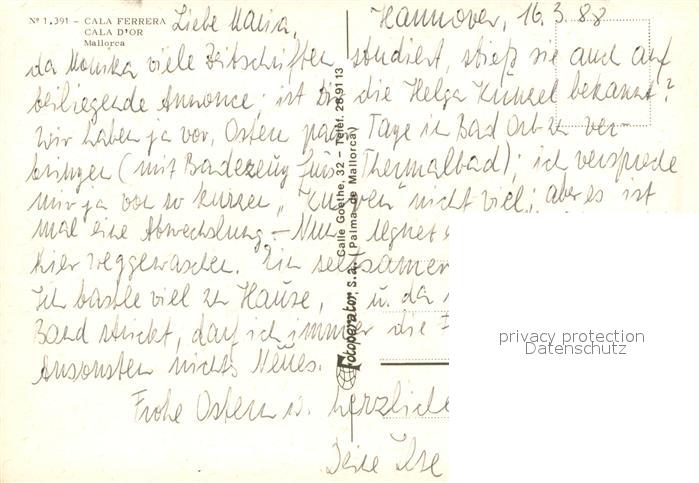 Nº 1.391 - CALA FERRERA
CALA D'OR
Mallorca
Liebe Maria,
Hannover, 16.3.88
da Monika viele Zeitschriften studiert, stieß sie auch auf
beiliegende Annonce: ist Dir die Helga Künzel bekannt?
Wir haben ja vor, Ostern paar Tage in Bad Orb zu ver-
bringen (mit Badezeug fürs Thermalbad); ich verspreche
mir ja von so kurzen "Kuren" nicht viel; aber es ist
mal eine Abwechslung. - Nun regnet
hier weggewaschen. Ein seltsamer
Ich bastle viel zu Hause, u. da
Band strickt, darf ich immer die
Ansonsten nichts Neues.
Frohe Ostern u. herzliche
Deine Ilse
Fotoperator s.a. Calle Goethe, 32 - Teléf. 28 91 13
Palma de Mallorca)
privacy protection
Datenschutz